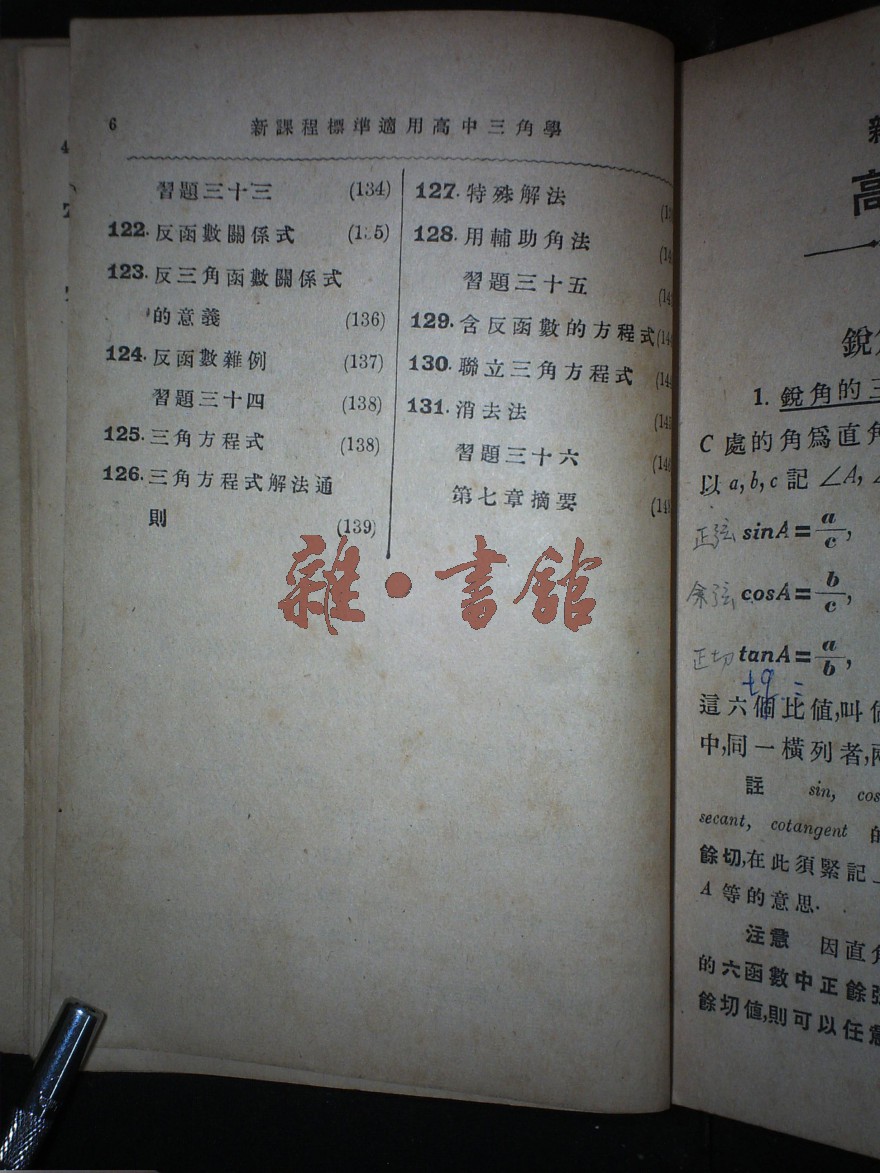 6
新課程標準適用高中三角學
習題三十三 (134)
122. 反函數關係式
123. 反三角函數關係式
的意義 (136)
124. 反函數雜例 (137)
習題三十四 (138)
125. 三角方程式 (138)
126. 三角方程式解法通
則 (139)
127. 特殊解法
128. 用輔助角法
習題三十五
129. 含反函數的方程式
130. 聯立三角方程式
131. 消去法
習題三十六
第七章摘要
雜·書館
高
銳
1. 銳角的三
C 處的角爲直角
以 a, b, c 記 ∠A,
正弦 sinA = a/c,
余弦 cosA = b/c,
正切 tanA = a/b,
tg
這六個比値,叫
中,同一橫列者,
註 sin, cos
secant, cotangent 的
餘切,在此須緊記
A 等的意思.
注意 因直角
的六函數中正餘弦
餘切値,則可以任意